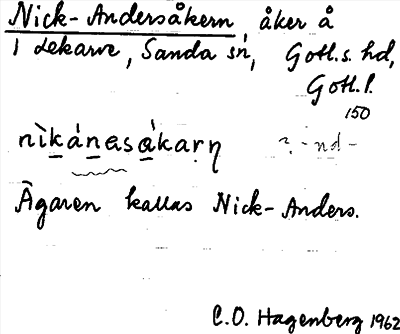 Nick-Andersåkern, åker å
1 Lekarve, Sanda sn, Gotl.s. hd,
Gotl. l.
150
nìkánasákarn ?-nd-
Ägaren kallas Nick-Anders.
C.O. Hagenberg 1962